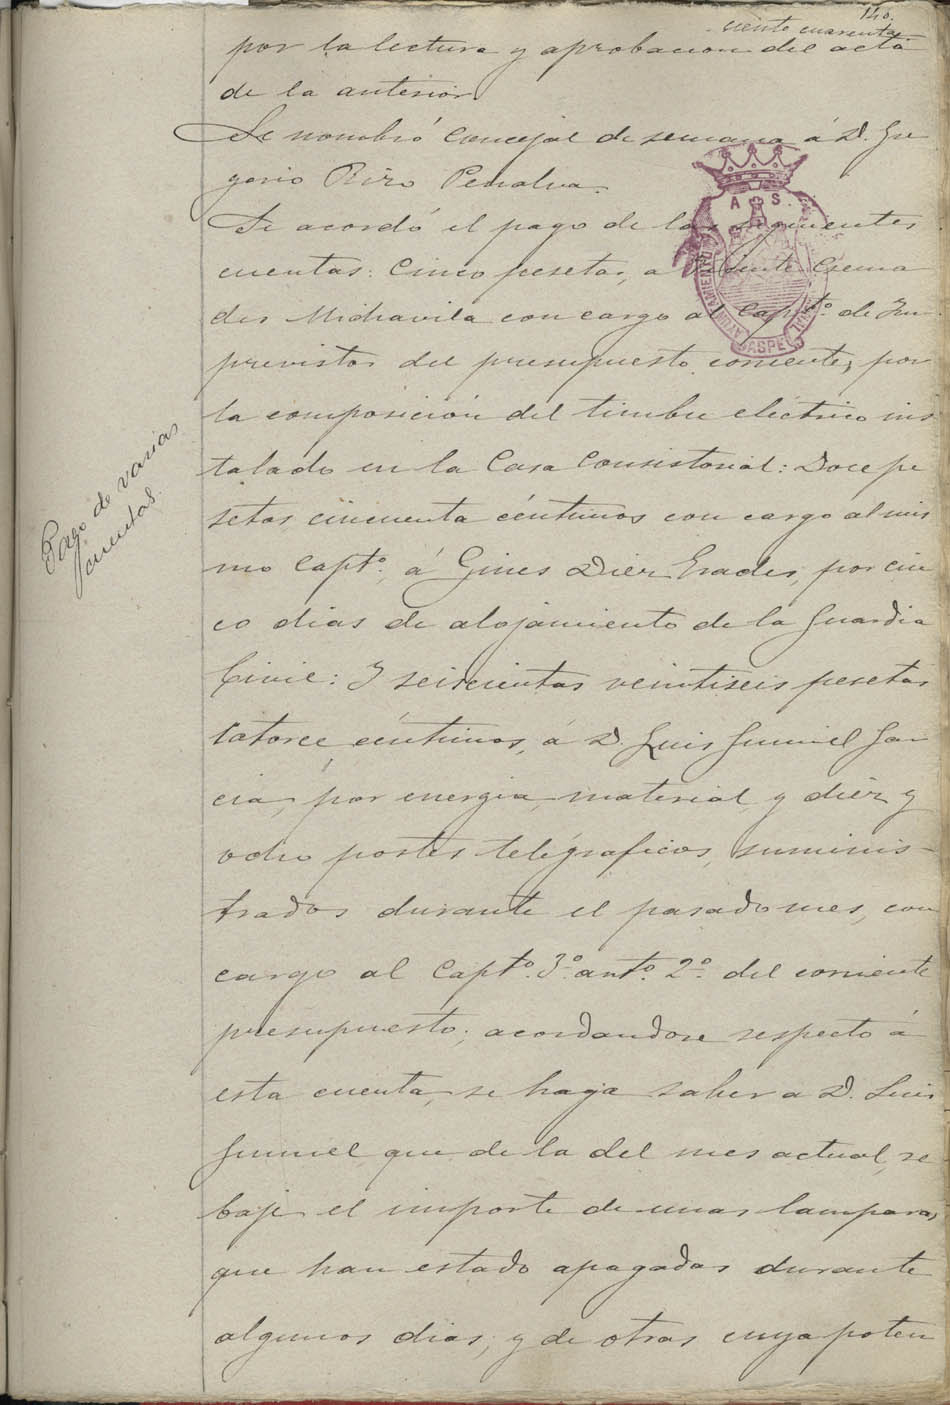 140.
ciento cuarenta
por la lectura y aprobacion del acta
de la anterior.
Se nombró Concejal de semana á D. Gre
gorio Rizo Penalva.
Se acordó el pago de las siguientes
cuentas: Cinco pesetas, a Vicente Crema
des Mirävila con cargo al Captº. de Im
previstos del presupuesto corriente, por
la composición del timbre eléctrico ins
talado en la Casa Consistorial: Doce pe
setas cincuenta céntimos con cargo al mis
mo Captº. á Gines Diez Erades, por cin
co dias de alojamiento de la Guardia
Civil: Y seiscientas veintiseis pesetas
catorce céntimos, á D. Luis Gumiel Gar
cia, por energia, material y diez y
ocho postes telégraficos, suminis-
trados durante el pasado mes, con
cargo al Captº. 3º. artº. 2º. del corriente
presupuesto; acordandose respecto á
esta cuenta, se haga saber a D. Luis
Gumiel que de la del mes actual, re
baje el importe de unas lamparas,
que han estado apagadas durante
algunos dias, y de otras cuya poten
Pago de varias
cuentas.
A S.
AYUNTAMIENTO
ASPE